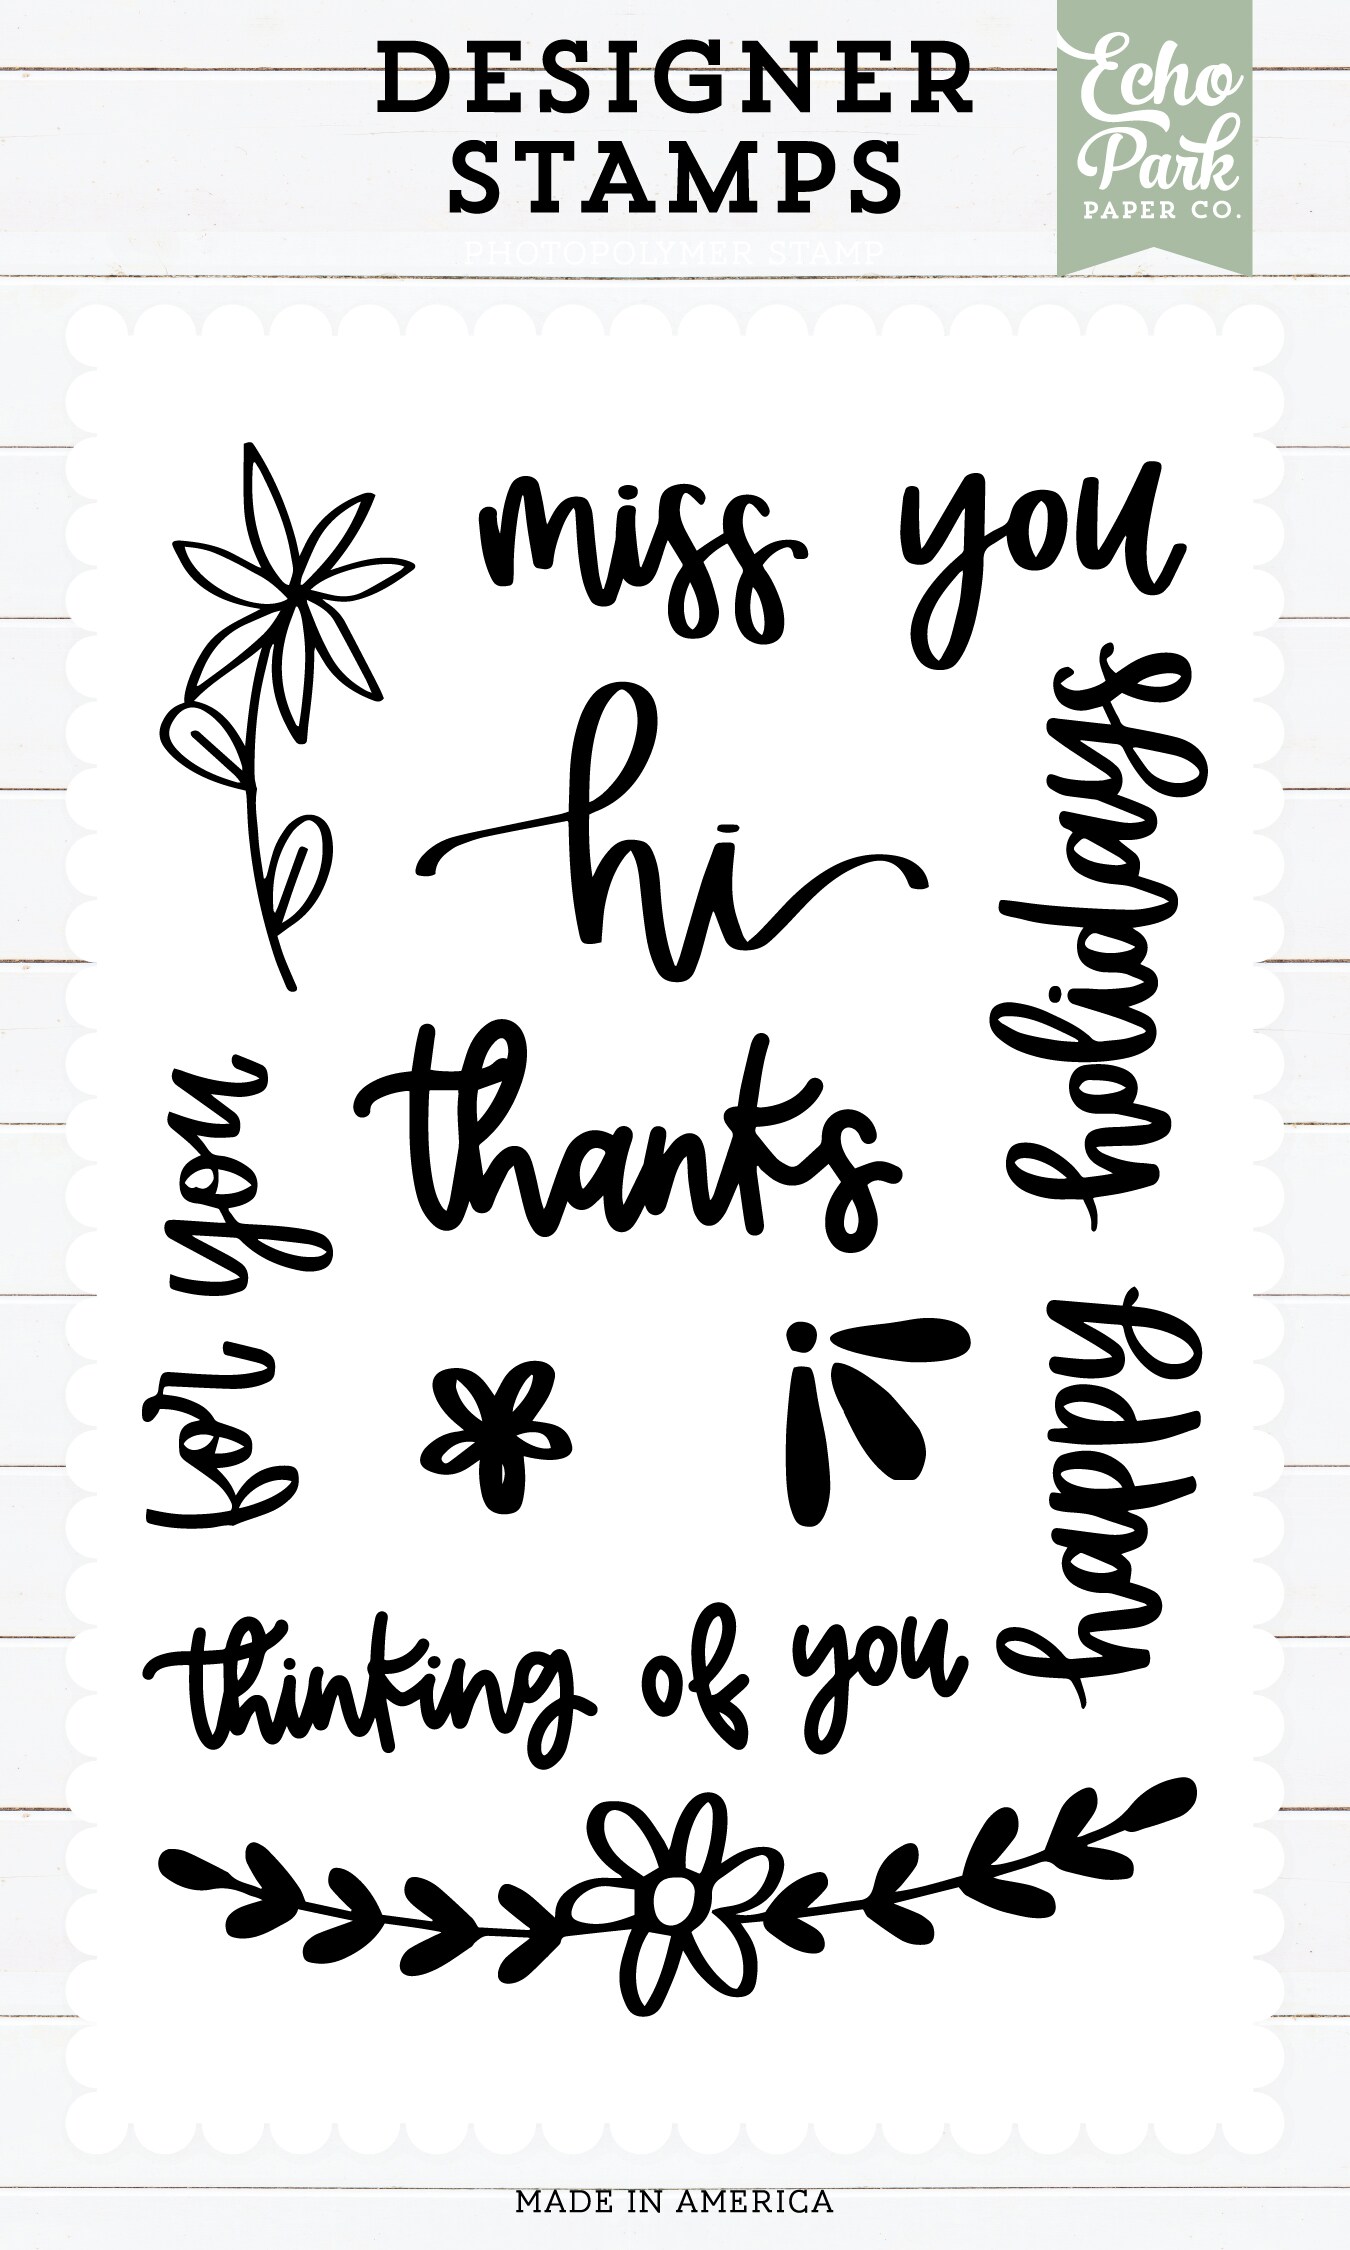 DESIGNER
STAMPS
PHOTOPOLYMER STAMP
Echo
Park
PAPER CO.
miss you
hi
thanks
for you
happy holidays
thinking of you
MADE IN AMERICA